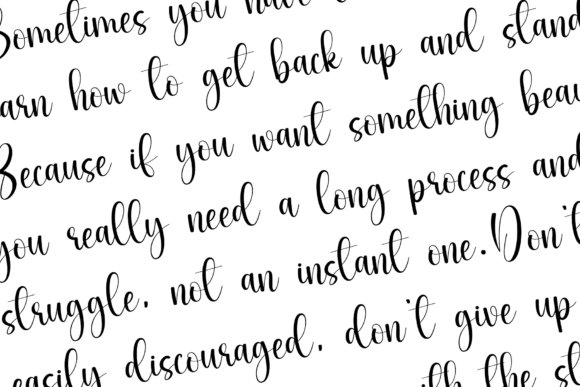 Sometimes you have
arn how to get back up and stand
Because if you want something beau
you really need a long process and
struggle, not an instant one. Don't
easily discouraged, don't give up
with the st